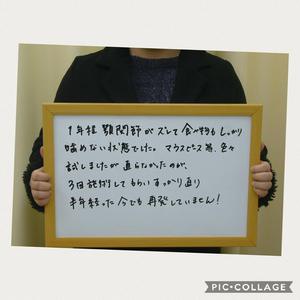 1年程 顎関節がズレて 食べ物も しっかり
噛めない状態でした。マウスピース等、色々
試しましたが 直らなかったのが、
3回施術して もらい すっかり直り
半年経った 今でも 再発していません!
PIC•COLLAGE